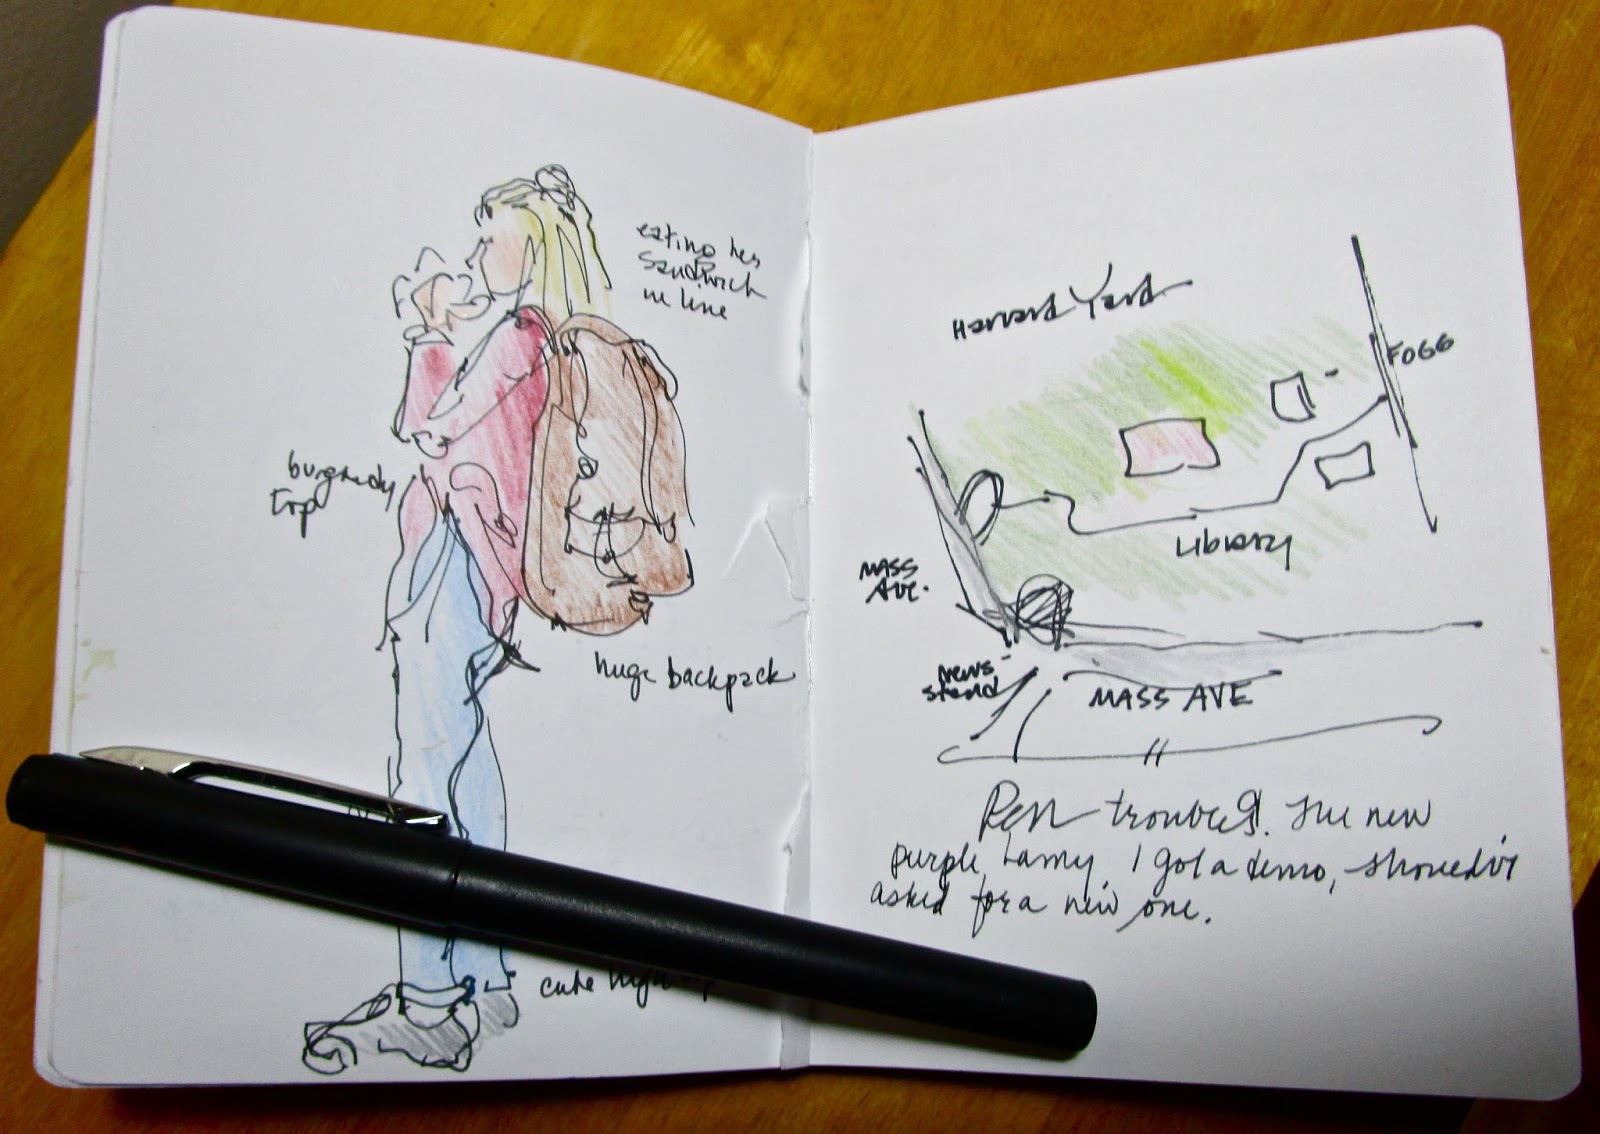 eating her
sandwich
in line
burgundy
top
huge backpack
cute high
Harvard Yard
FOGG
Library
MASS
Ave.
News-
stand
MASS AVE
Pen troubles. The new
purple Lamy. I got a demo, should've
asked for a new one.